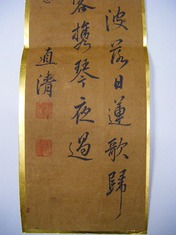 波落日蓮歌歸
客攜琴夜過
直清